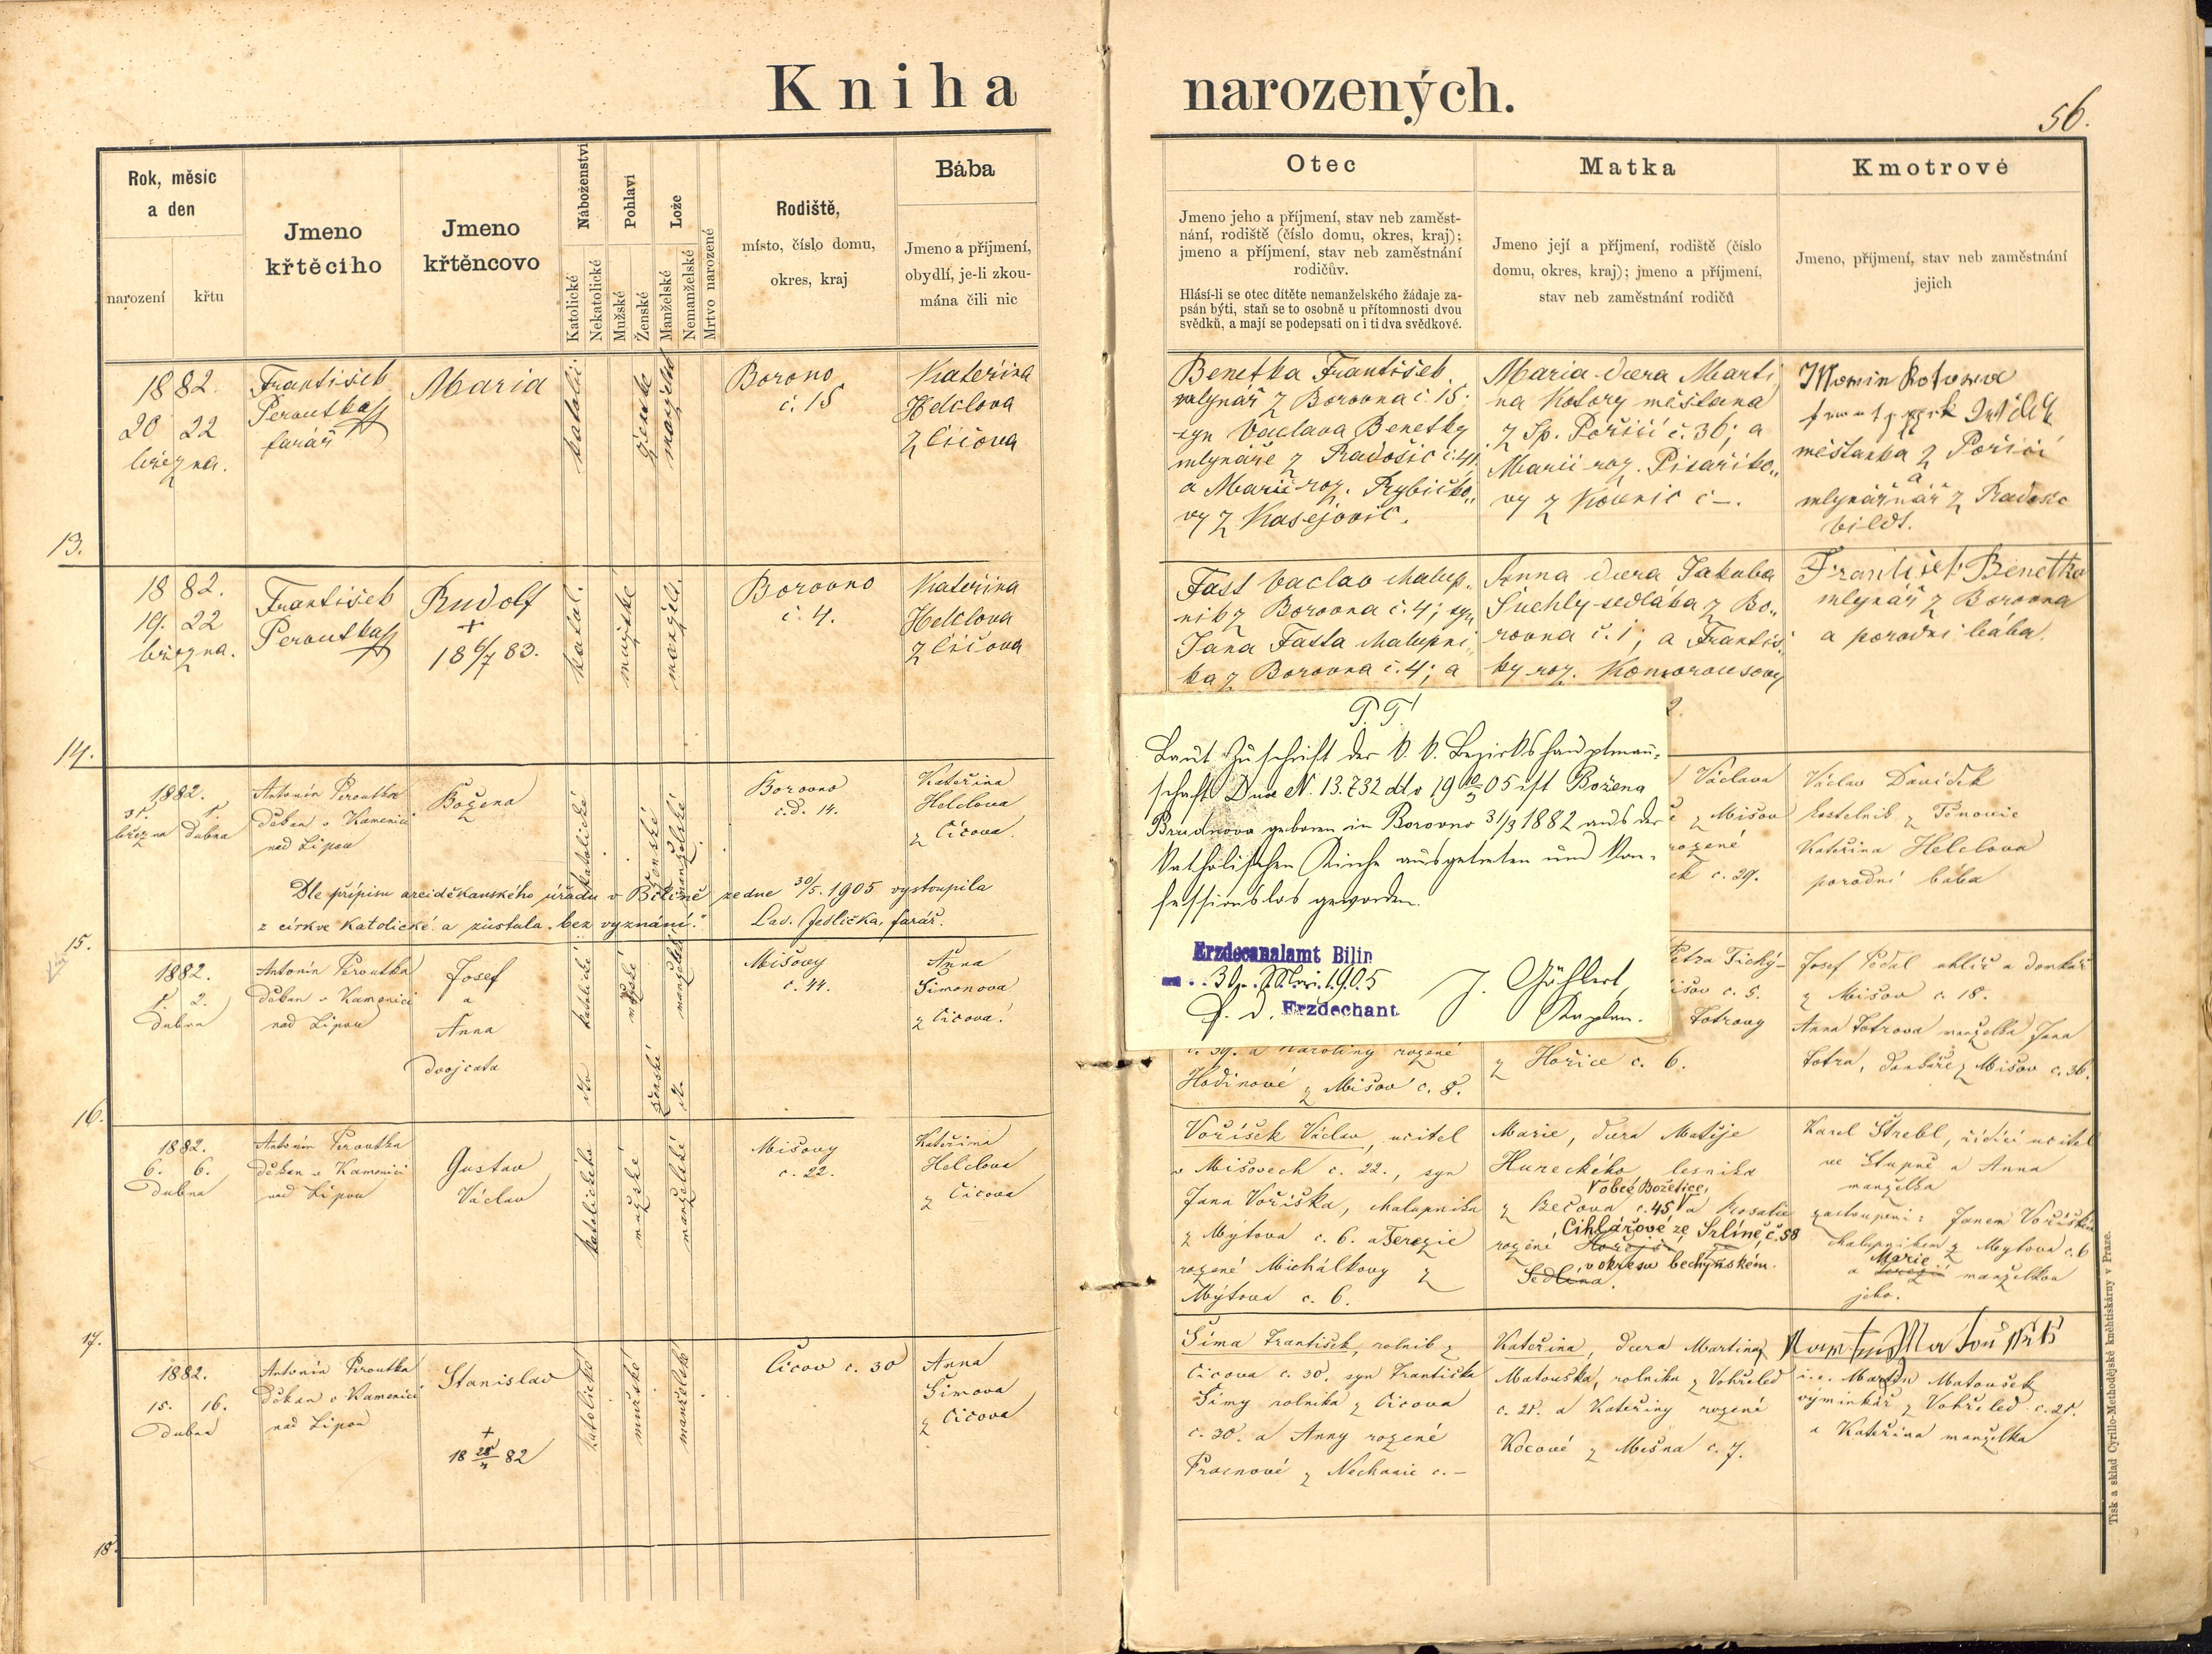 Kniha narozených.
56.
Rok, měsíc
a den
narození
křtu
Jmeno
křtěcího
Jmeno
křtěncovo
Náboženství
Katolické
Nekatolické
Pohlaví
Mužské
Ženské
Lože
Manželské
Nemanželské
Mrtvo narozené
Rodiště,
místo, číslo domu,
okres, kraj
Bába
Jmeno a příjmení,
obydlí, je-li zkou-
mána čili nic
Otec
Jmeno jeho a příjmení, stav neb zaměst-
nání, rodiště (číslo domu, okres, kraj);
jmeno a příjmení, stav neb zaměstnání
rodičův.
Hlásí-li se otec dítěte nemanželského žádaje za-
psán býti, staň se to osobně u přítomnosti dvou
svědků, a mají se podepsati on i ti dva svědkové.
Matka
Jmeno její a příjmení, rodiště (číslo
domu, okres, kraj); jmeno a příjmení,
stav neb zaměstnání rodičů
Kmotrové
Jmeno, příjmení, stav neb zaměstnání
jejich
13.
1882.
20 22
března.
František
Peroutka
farář
Maria
katolic.
ženské
Borovno
č. 15
Kateřina
Helclova
z Číčova
Benetka František
mlynář z Borovna č. 15;
syn Vaclava Benetky
mlynáře z Radošic č. 41
a Marie roz. Rybičko„
vy z Kasejovic.
Maria dcera Marti
na Kotory měštana
z Sp. Poříčí č. 36; a
Marii roz. Pisaříko„
vy z Kounic č –.
měštanka z Poříčí
a
mlynář z
14.
1882.
19. 22
března.
František
Peroutka
Rudolf
+
18 6/7 83.
katol.
mužské
manžels.
Borovno
č. 4.
Kateřina
Helclova
z Číčova
Fast Vaclav chalup„
nik z Borovna č. 4; syn
Jana Fasta chalupni„
ka z Borovna č. 4; a
Anna dcera Jakuba
Suchly sedláka z Bo„
rovna č. 1; a Františ„
ky roz. Komorousovy
František Benetka
mlynář z Borovna
a porodni bába.
15.
1882.
31. 1.
března dubna
Antonín Peroutka
děkan v Kamenici
nad Lipou
Božena
katolické
ženské
manželské
Borovno
č.d. 14.
Kateřina
Helclova
z Číčova.
Dle přípisu arciděkanského úřadu v Bílině ze dne 30/5. 1905 vystoupila
z církve katolické a zůstala „bez vyznání." Lad. Jedlička, farář.
Václava
z Mišov
rozené
č. 29.
Václav Davídek
kostelník z
Kateřina Helclova
porodní bába
P. T.
Laut Zuschrift der k. k. Bezirkshauptmann-
schaft Dux N. 13.732 dto 19 05 ist Božena
geboren in Borovno 31/3 1882 aus der
katholischen Kirche ausgetreten und kon-
fessionslos geworden.
Erzdecanalamt Bilin
30. Mai 1905
Erzdechant
J. Göhlert,
Kaplan.
16.
1882.
1. 2.
Dubna
Antonín Peroutka
děkan v Kamenici
nad Lipou
Josef
a
Anna
dvojčata
katolické
mužské
manželské
ženské
Mišovy
č. 44.
Anna
Šimonova
z Číčova.
č. 39. a Karoliny rozené
Hodinové z Mišov č. 8.
Petra Tichý-
Mišov č. 5.
Fotrovy
z Hořice č. 6.
Josef Pedal uhlíř a domkář
z Mišov č. 18.
Anna Fotrova manželka Jana
Fotra, domkáře z Mišov č. 36.
17.
1882.
6. 6.
Dubna
Antonín Peroutka
děkan v Kamenici
nad Lipou
Gustav
Václav
katolického
mužské
manželské
Mišovy
č. 22.
Kateřina
Helclova
z Číčova
Voříšek Václav, učitel
v Mišovech č. 22., syn
Jana Voříška, chalupnika
z Mýtova č. 6. a Terezie
rozené Michálkovy z
Mýtova č. 6.
Marie, dcera Matěje
Huneckého, lesníka
V obec Božetice,
z Bečova č. 45 a Rosalie
Cihlářové ze Srlíně, č. 58
rozené
v okresu bechyňském.
Sedlina.
Karel Strebl, řídící učitel
ve Stupně a Anna
manželka
zastoupeni: Janem Voříškem
chalupníkem z Mýtova č. 6
Marie
a Terezií manželkou
jeho.
18.
1882.
15. 16.
Dubna
Antonín Peroutka
děkan v Kamenici
nad Lipou
Stanislav
+
katolické
mužské
manželské
Číčov č. 30
Anna
Šimova
z Číčova
Šíma František, rolník z
Číčova č. 30. syn Františka
Šímy rolníka z Číčova
č. 30. a Anny rozené
z Nechanic č. –
Kateřina, dcera Martina
Matouška, rolníka z Vohřeled
č. 21. a Kateřiny rozené
Kocové z Mešna č. 7.
Martin Matoušek
i.e. Martin Matoušek
výminkář z Vohřeled č. 21.
a Kateřina manželka
Tisk a sklad Cyrillo-Methodějské knihtiskárny v Praze.